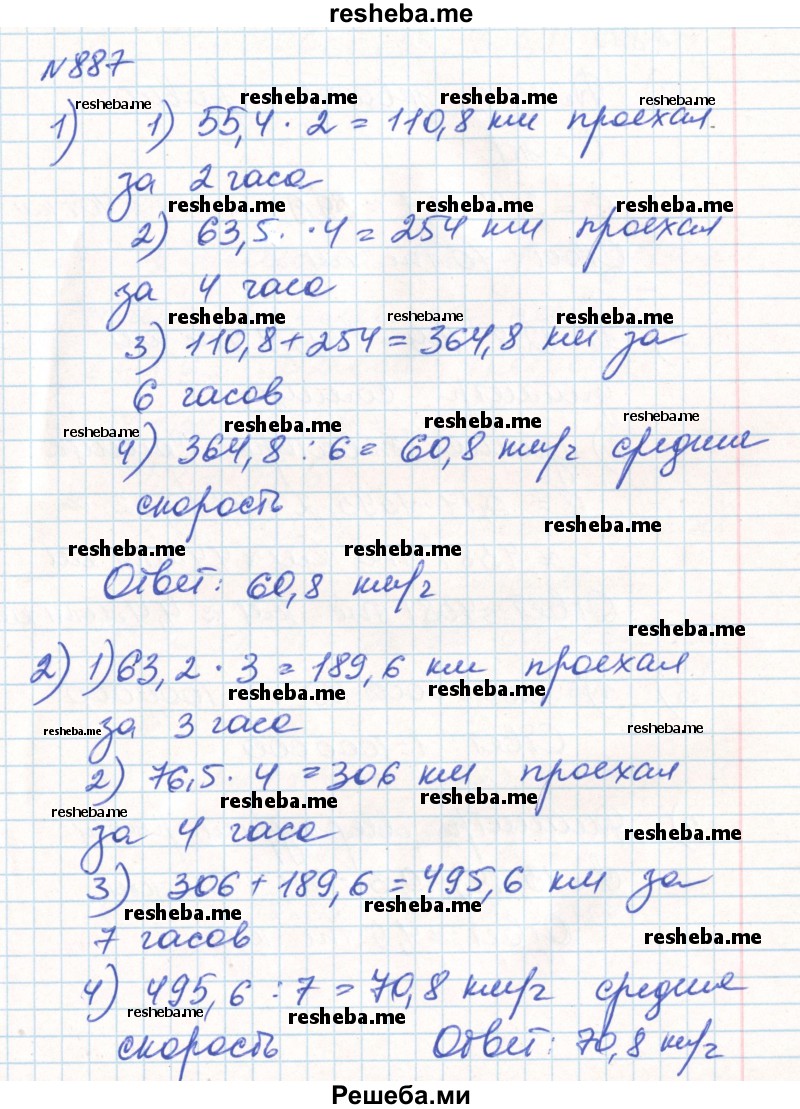 resheba.me
№887
resheba.me resheba.me resheba.me resheba.me
1) 1) 55,4 · 2 = 110,8 км проехал.
за 2 часа
resheba.me resheba.me resheba.me
2) 63,5. · 4 = 254 км проехал
за 4 часа
resheba.me resheba.me resheba.me
3) 110,8 + 254 = 364,8 км за
6 часов
resheba.me resheba.me resheba.me resheba.me
4) 364,8 : 6 = 60,8 км/ч средняя
скорость
resheba.me
resheba.me resheba.me
Ответ: 60,8 км/ч
resheba.me
2) 1) 63,2 · 3 = 189,6 км проехал
resheba.me resheba.me
resheba.me за 3 часа resheba.me
2) 76,5 · 4 = 306 км проехал
resheba.me resheba.me resheba.me
за 4 часа resheba.me
3) 306 + 189,6 = 495,6 км за
resheba.me resheba.me
7 часов resheba.me
4) 495,6 : 7 = 70,8 км/ч средняя
resheba.me resheba.me
скорость Ответ: 70,8 км/ч
Решеба.ми